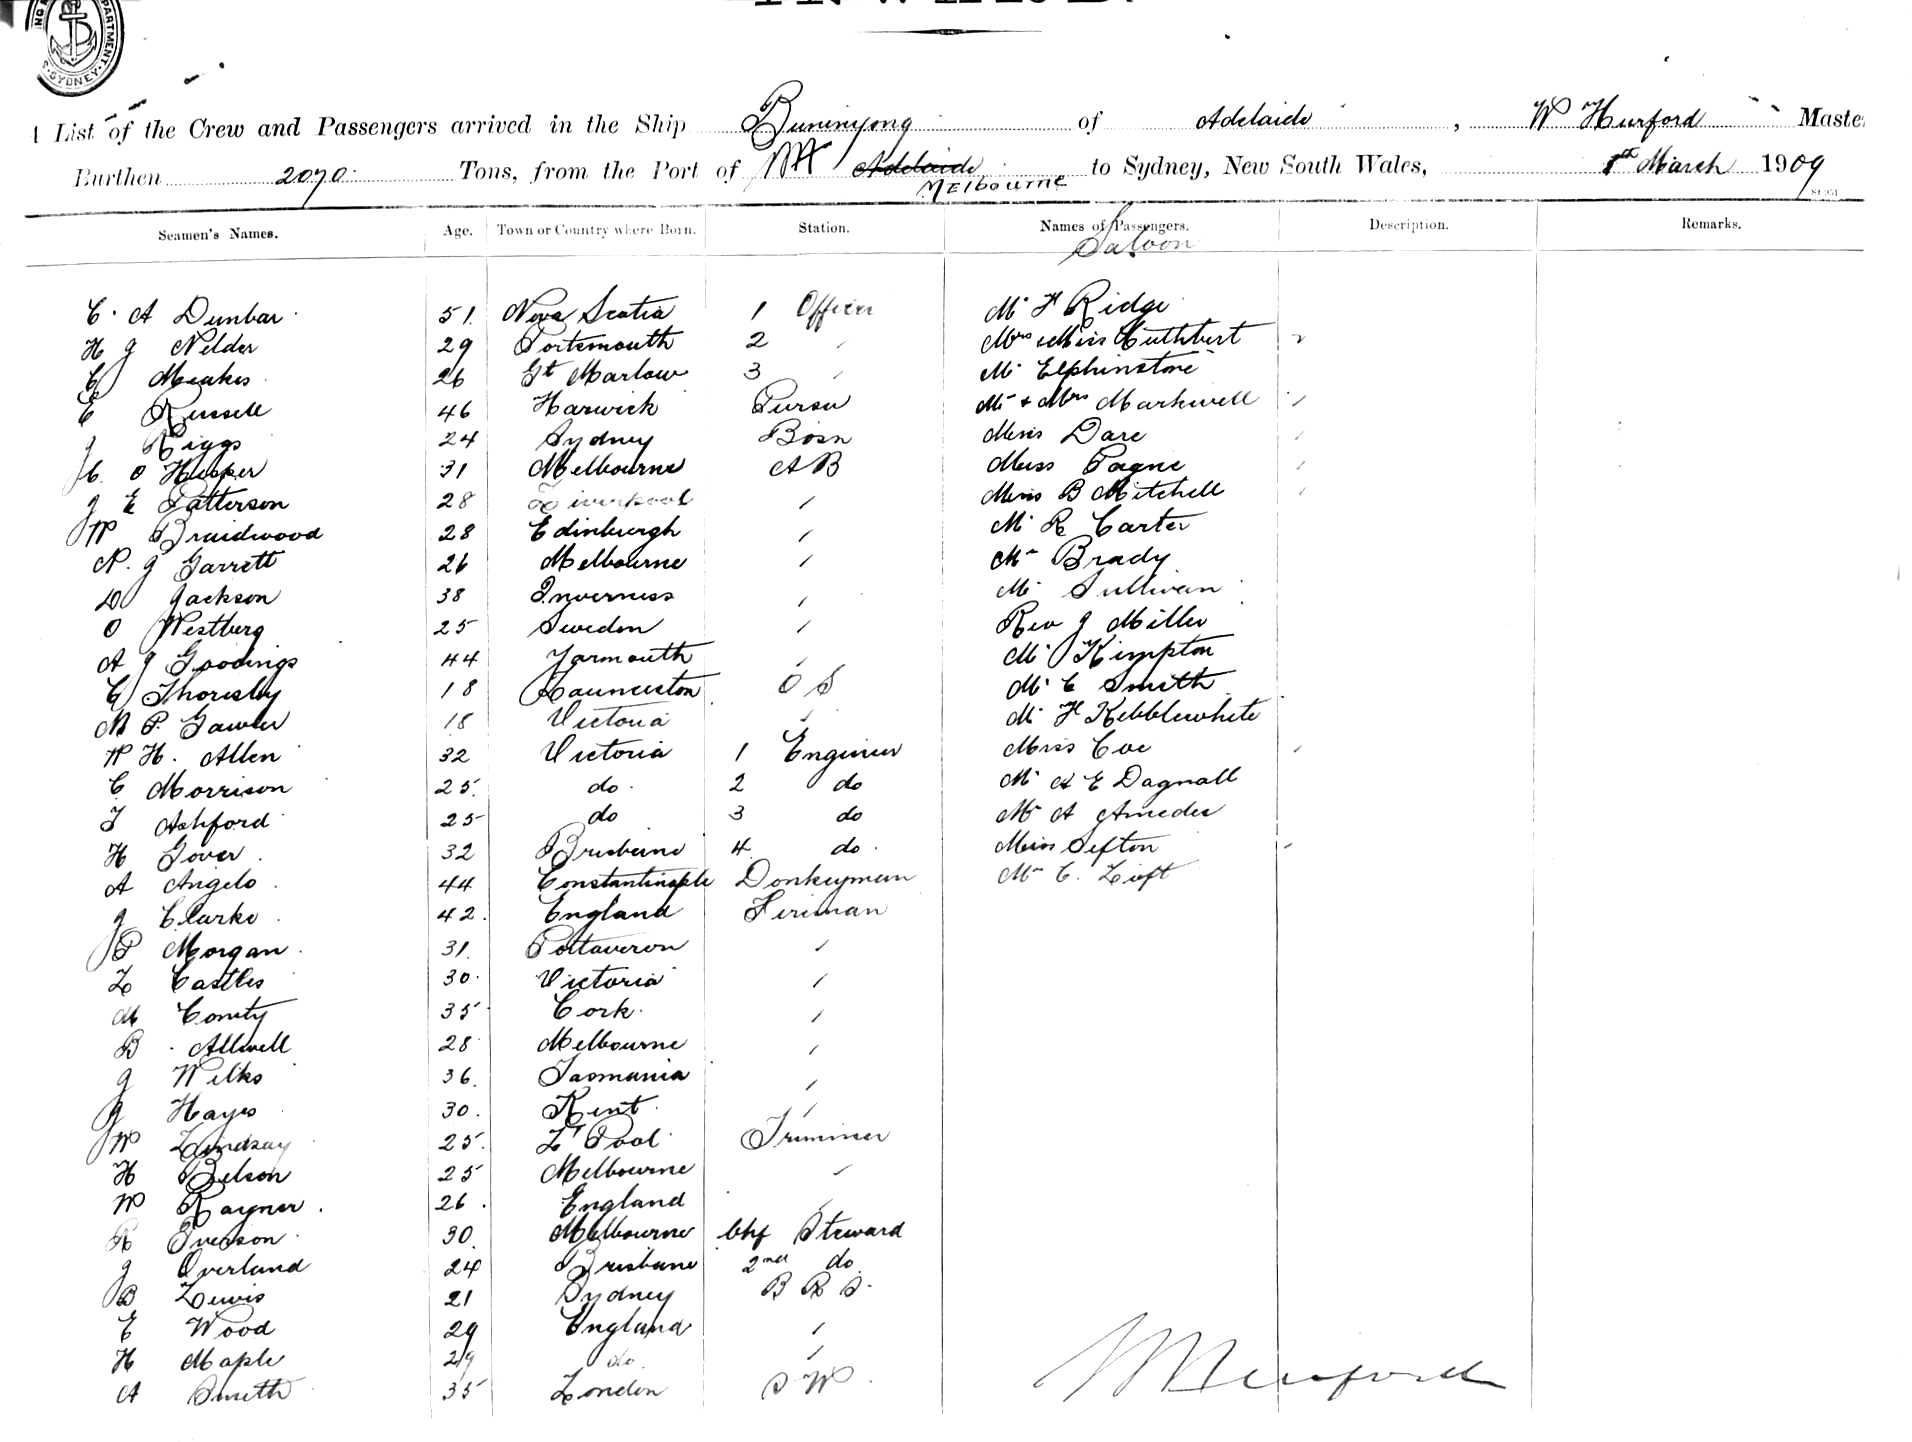 DEPARTMENT
SYDNEY
INWARD.
List of the Crew and Passengers arrived in the Ship Buninyong of Adelaide, W Hurford Maste
Burthen 2070 Tons, from the Port of Adelaide Melbourne to Sydney, New South Wales, 1st March 1909
Seamen's Names. Age. Town or Country where Born. Station. Names of Passengers. Description. Remarks.
Saloon
C. A Dunbar 51 Nova Scotia 1 Officer Mr F Ridge
H J Nelder 29 Portsmouth 2 Mrs & Miss Cuthbert 2
C Meakes 26 Gt Marlow 3 Mr Elphinstone
E Russell 46 Harwick Purser Mr + Mrs Markwell
J Riggs 24 Sydney Bosn Miss Dare
C. O Hooper 31 Melbourne AB Miss Payne
J E Patterson 28 Liverpool Miss B Mitchell
W Braidwood 28 Edinburgh Mr R Carter
N. J Garrett 26 Melbourne Mr Brady
D Jackson 38 Inverness Mr Sullivan
O Westberg 25 Sweden Rev J Miller
A J Goodings 44 Yarmouth Mr Kimpton
C Thoresby 18 Launceston O S Mr C Smith
M P. Gawler 18 Victoria Mr F Kebblewhite
W H. Allen 32 Victoria 1 Engineer Miss Coe
C Morrison 25 do 2 do Mr A E Dagnall
T Ashford 25 do 3 do Mr A Amedee
H Gover 32 Brisbane 4 do Miss Sefton
A Angelo 44 Constantinople Donkeyman Mr C. Lift
J Clarke 42 England Fireman
P Morgan 31 Pottaveron
L Castles 30 Victoria
M Comty 35 Cork
B Allwell 28 Melbourne
J Wilks 36 Tasmania
J Hayes 30 Kent
W Lindsay 25 L'Pool Trimmer
H Belson 25 Melbourne
W Rayner 26 England
R Iverson 30 Melbourne Chf Steward
J Overland 24 Brisbane 2nd do
B Lewis 21 Sydney B R S
E Wood 29 England
H Maple 29 do
A Smith 35 London S W
W Hurford